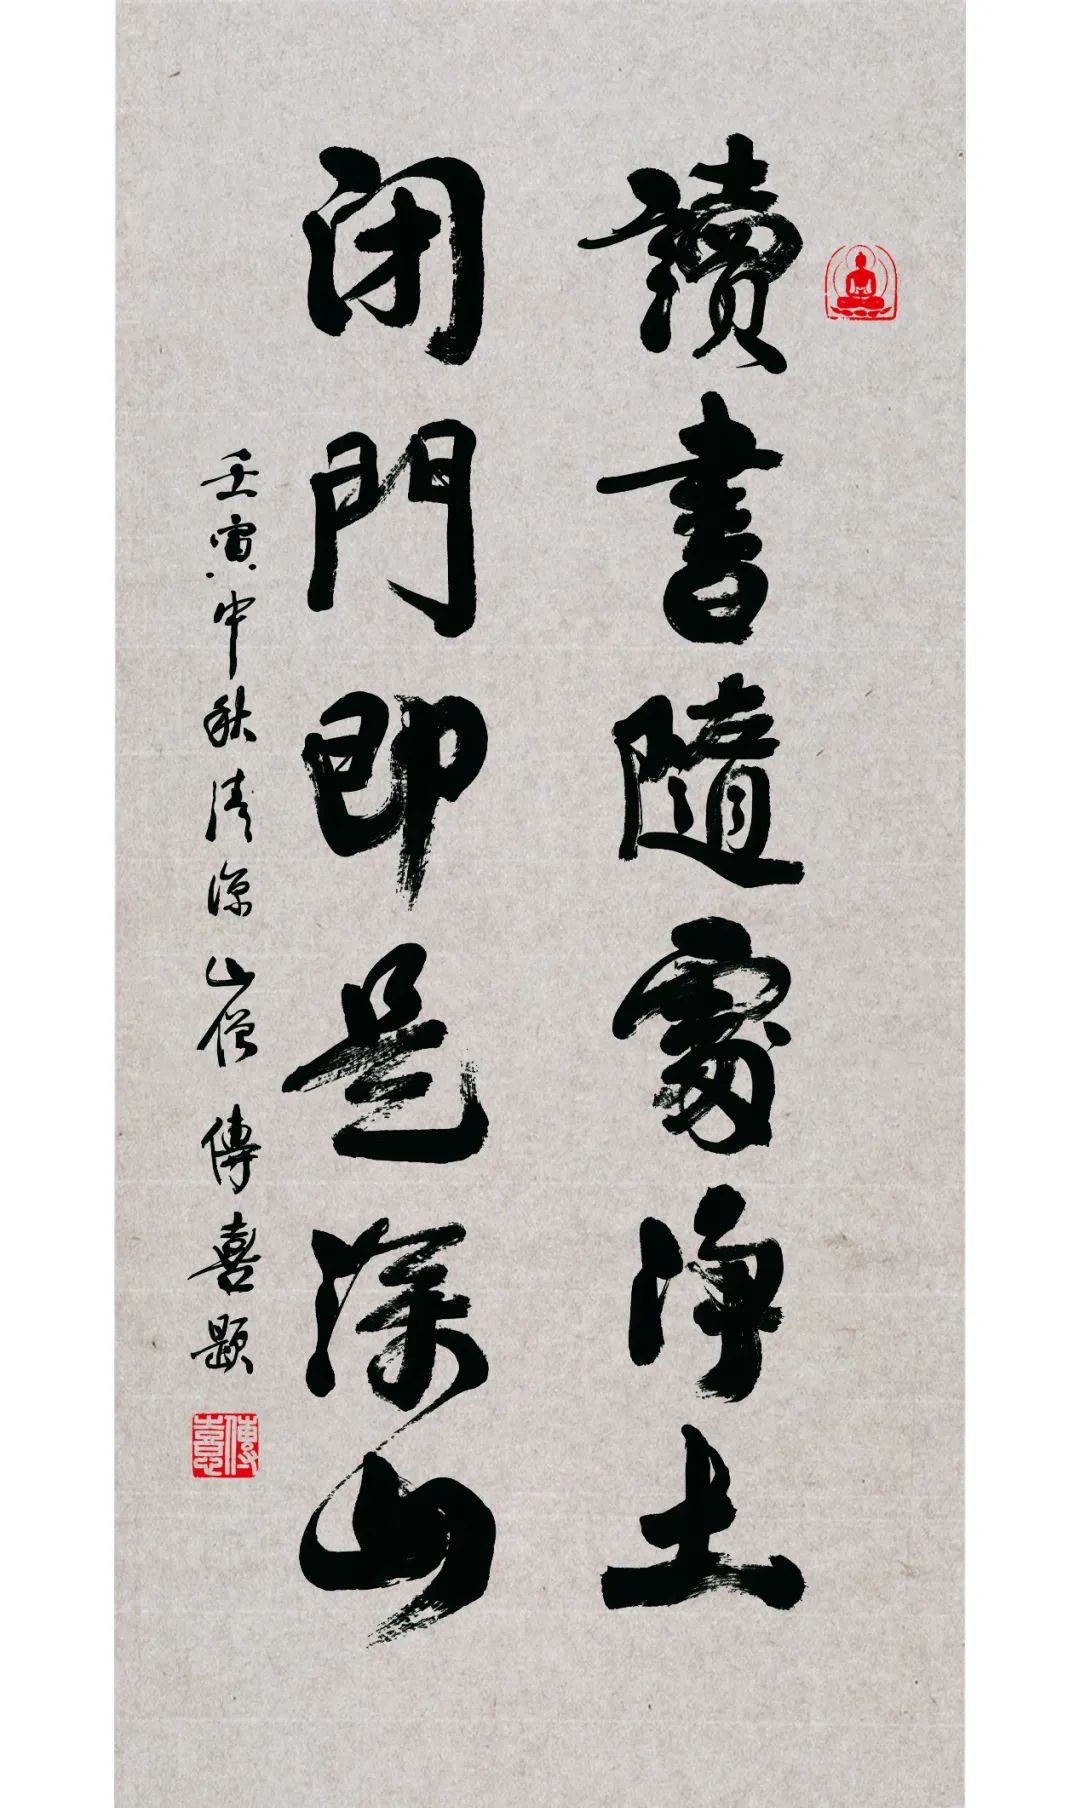 讀書隨處浄土
闭門即是深山
壬寅中秋清凉山僧傳喜題
傳喜